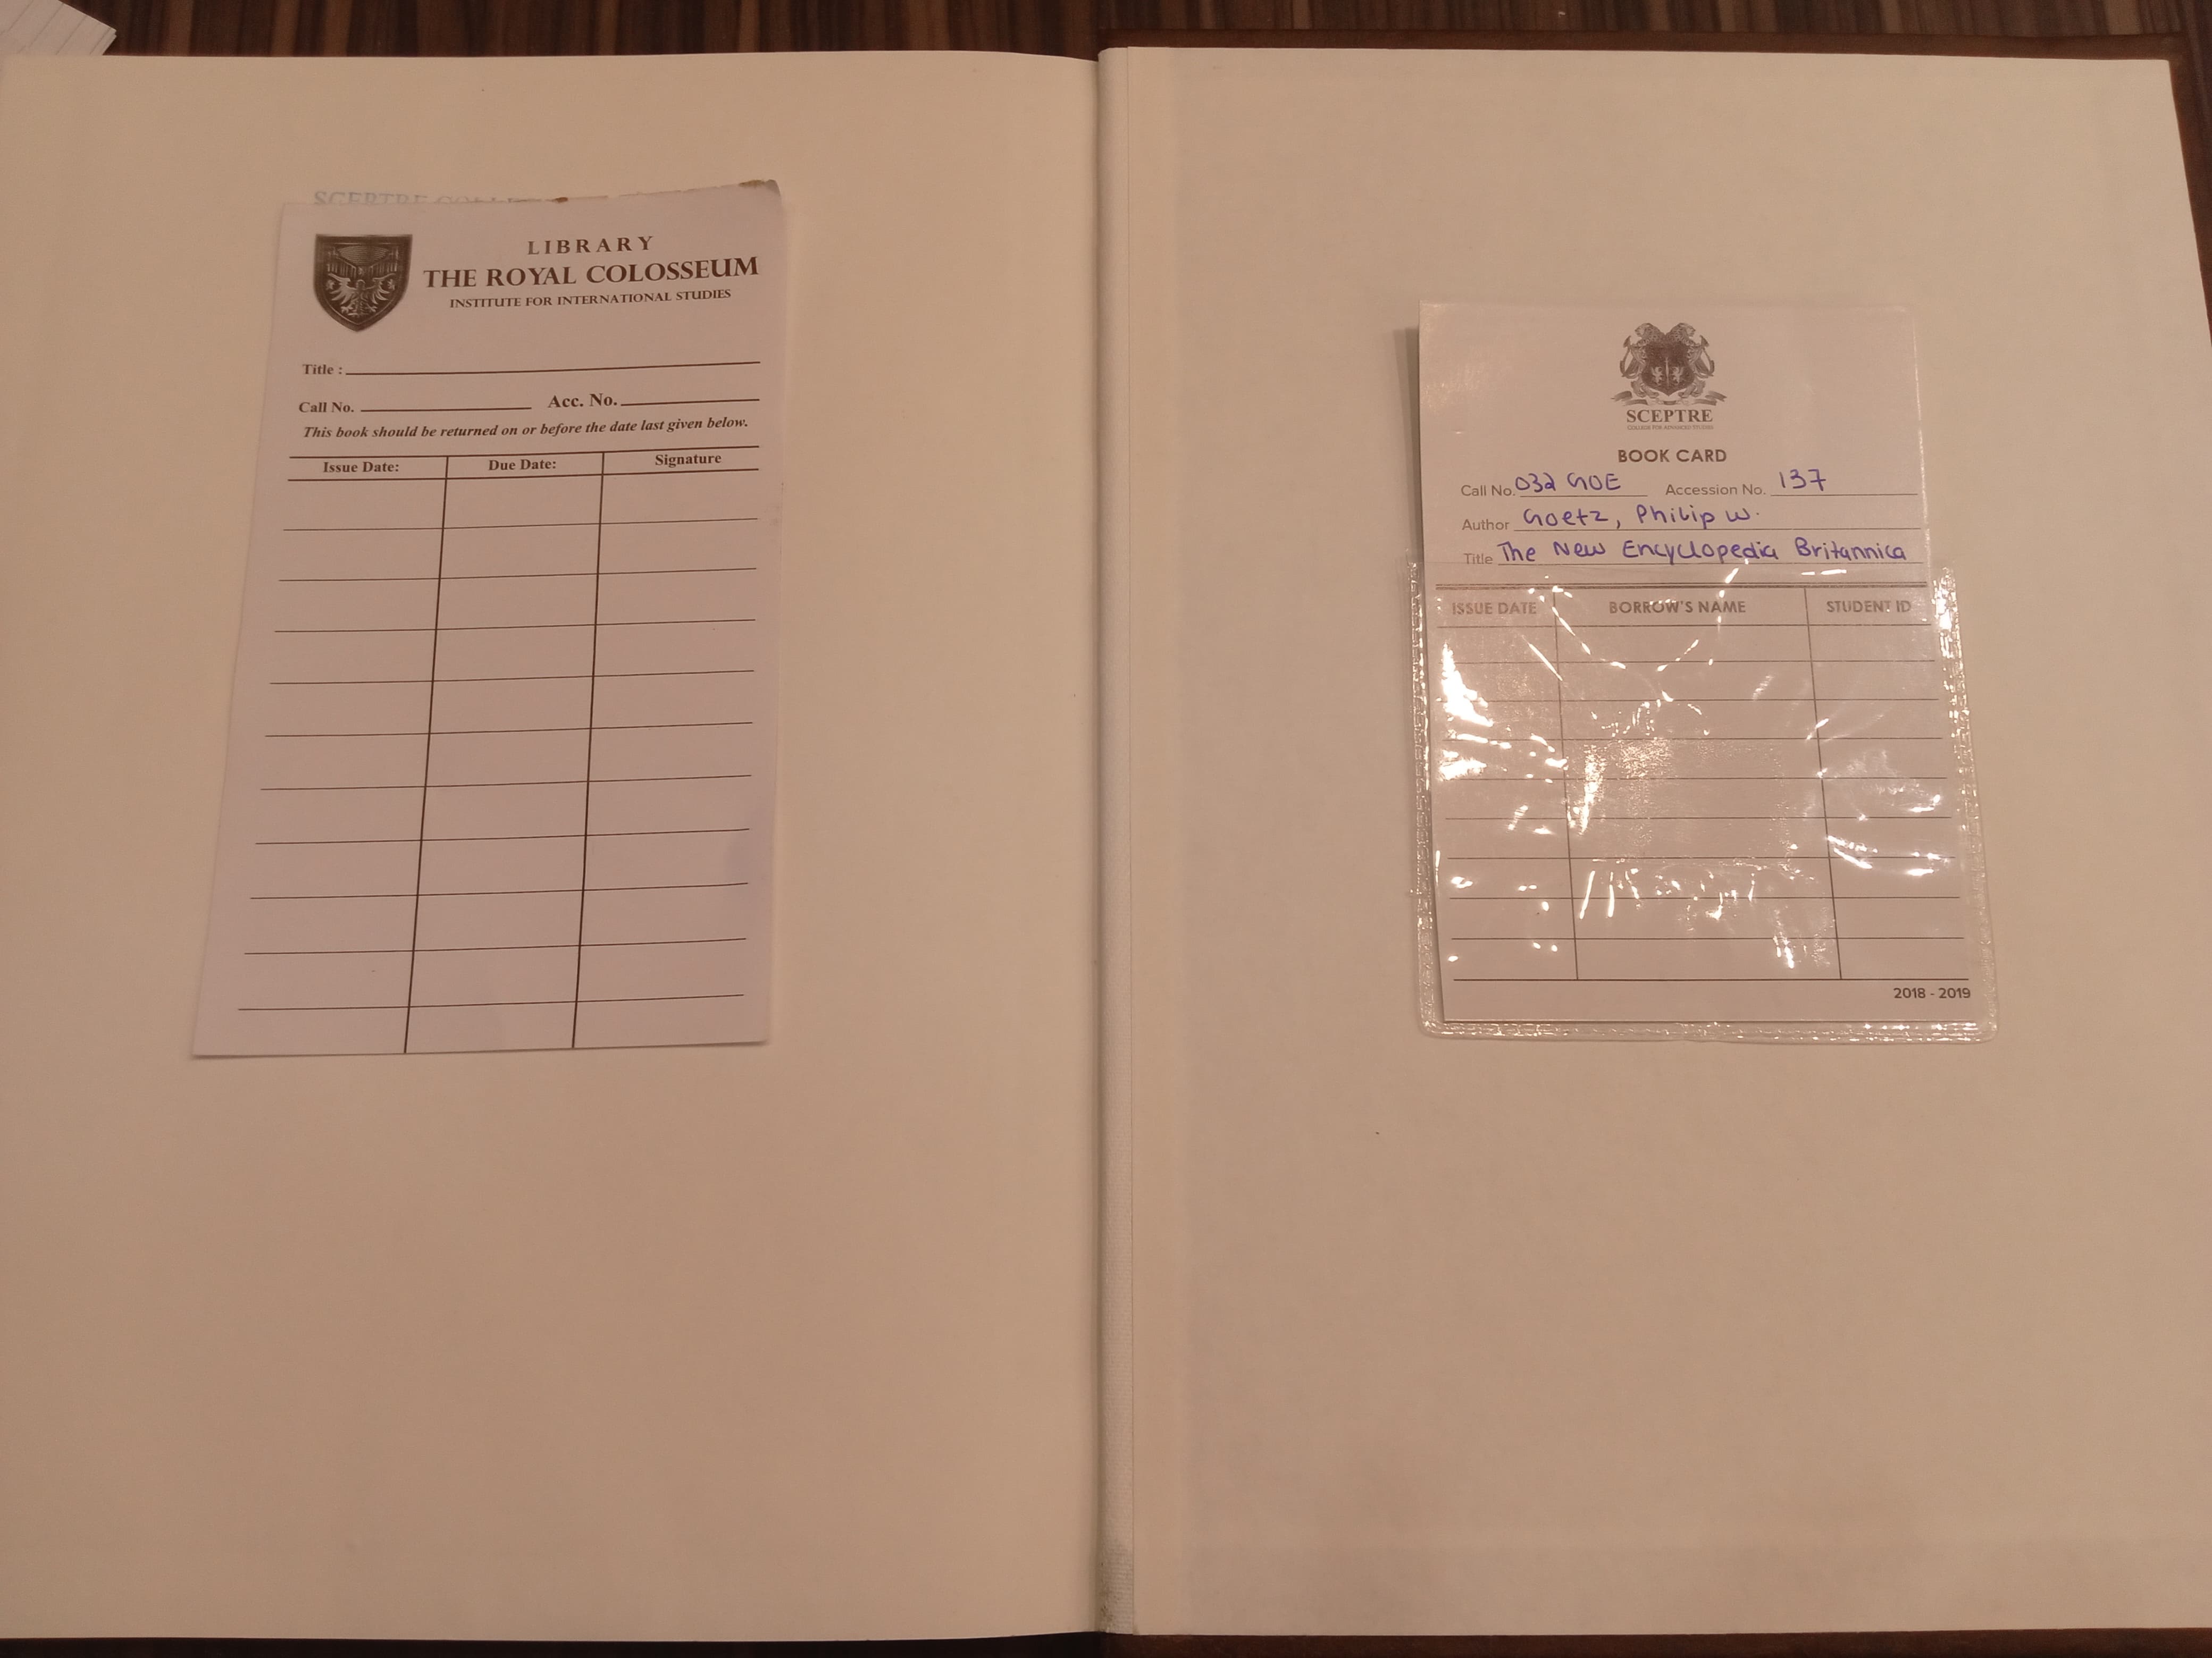 SCEPTRE
LIBRARY
THE ROYAL COLOSSEUM
INSTITUTE FOR INTERNATIONAL STUDIES
Title :
Call No. Acc. No.
This book should be returned on or before the date last given below.
Issue Date: Due Date: Signature
SCEPTRE
COLLEGE FOR ADVANCED STUDIES
BOOK CARD
Call No. 032 GOE Accession No. 137
Author Goetz, Philip W.
Title The New Encyclopedia Britannica
ISSUE DATE BORROW'S NAME STUDENT ID
2018 - 2019